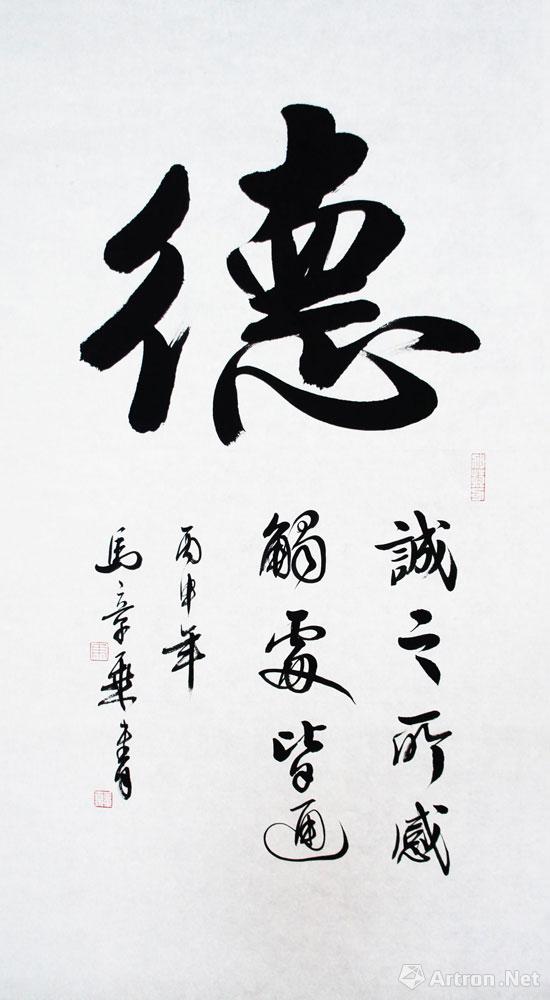 德
誠之所感
觸處皆通
丙申年
馬章乘書
Artron.Net